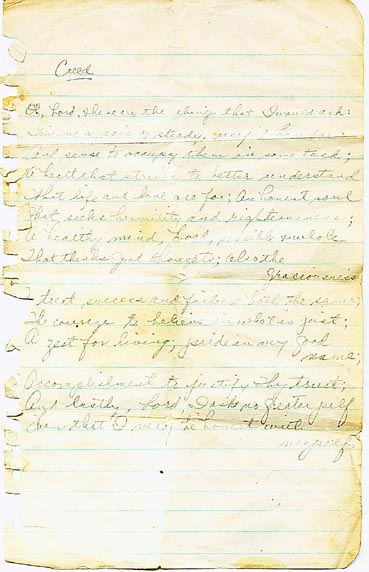 Creed
Oh, Lord, these are the things that I would ask:
Give me a pair of steady, useful hands
And sense to occupy them in some task;
A heart that strives to better understand
What life and love are for; An honest soul
That seeks humility and righteousness;
A healthy mind, Lord, possible whole
That thinks good thoughts; Also the
graciousness
To treat success and failure both the same;
The courage to believe in what is just;
A zest for living; pride in my good
name;
Accomplishment to justify Thy trust;
And lastly, Lord, I ask no greater pelf
than that I may be honest with
myself.